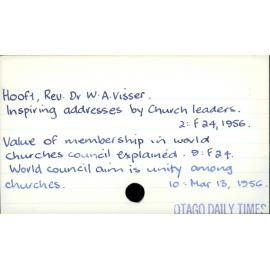 Hooft, Rev. Dr W.A. Visser.
Inspiring addresses by Church leaders.
2: F 24, 1956.
Value of membership in world
churches council explained. 9: F 24.
World council aim is unity among
churches. 10: Mar 13, 1956.
OTAGO DAILY TIMES